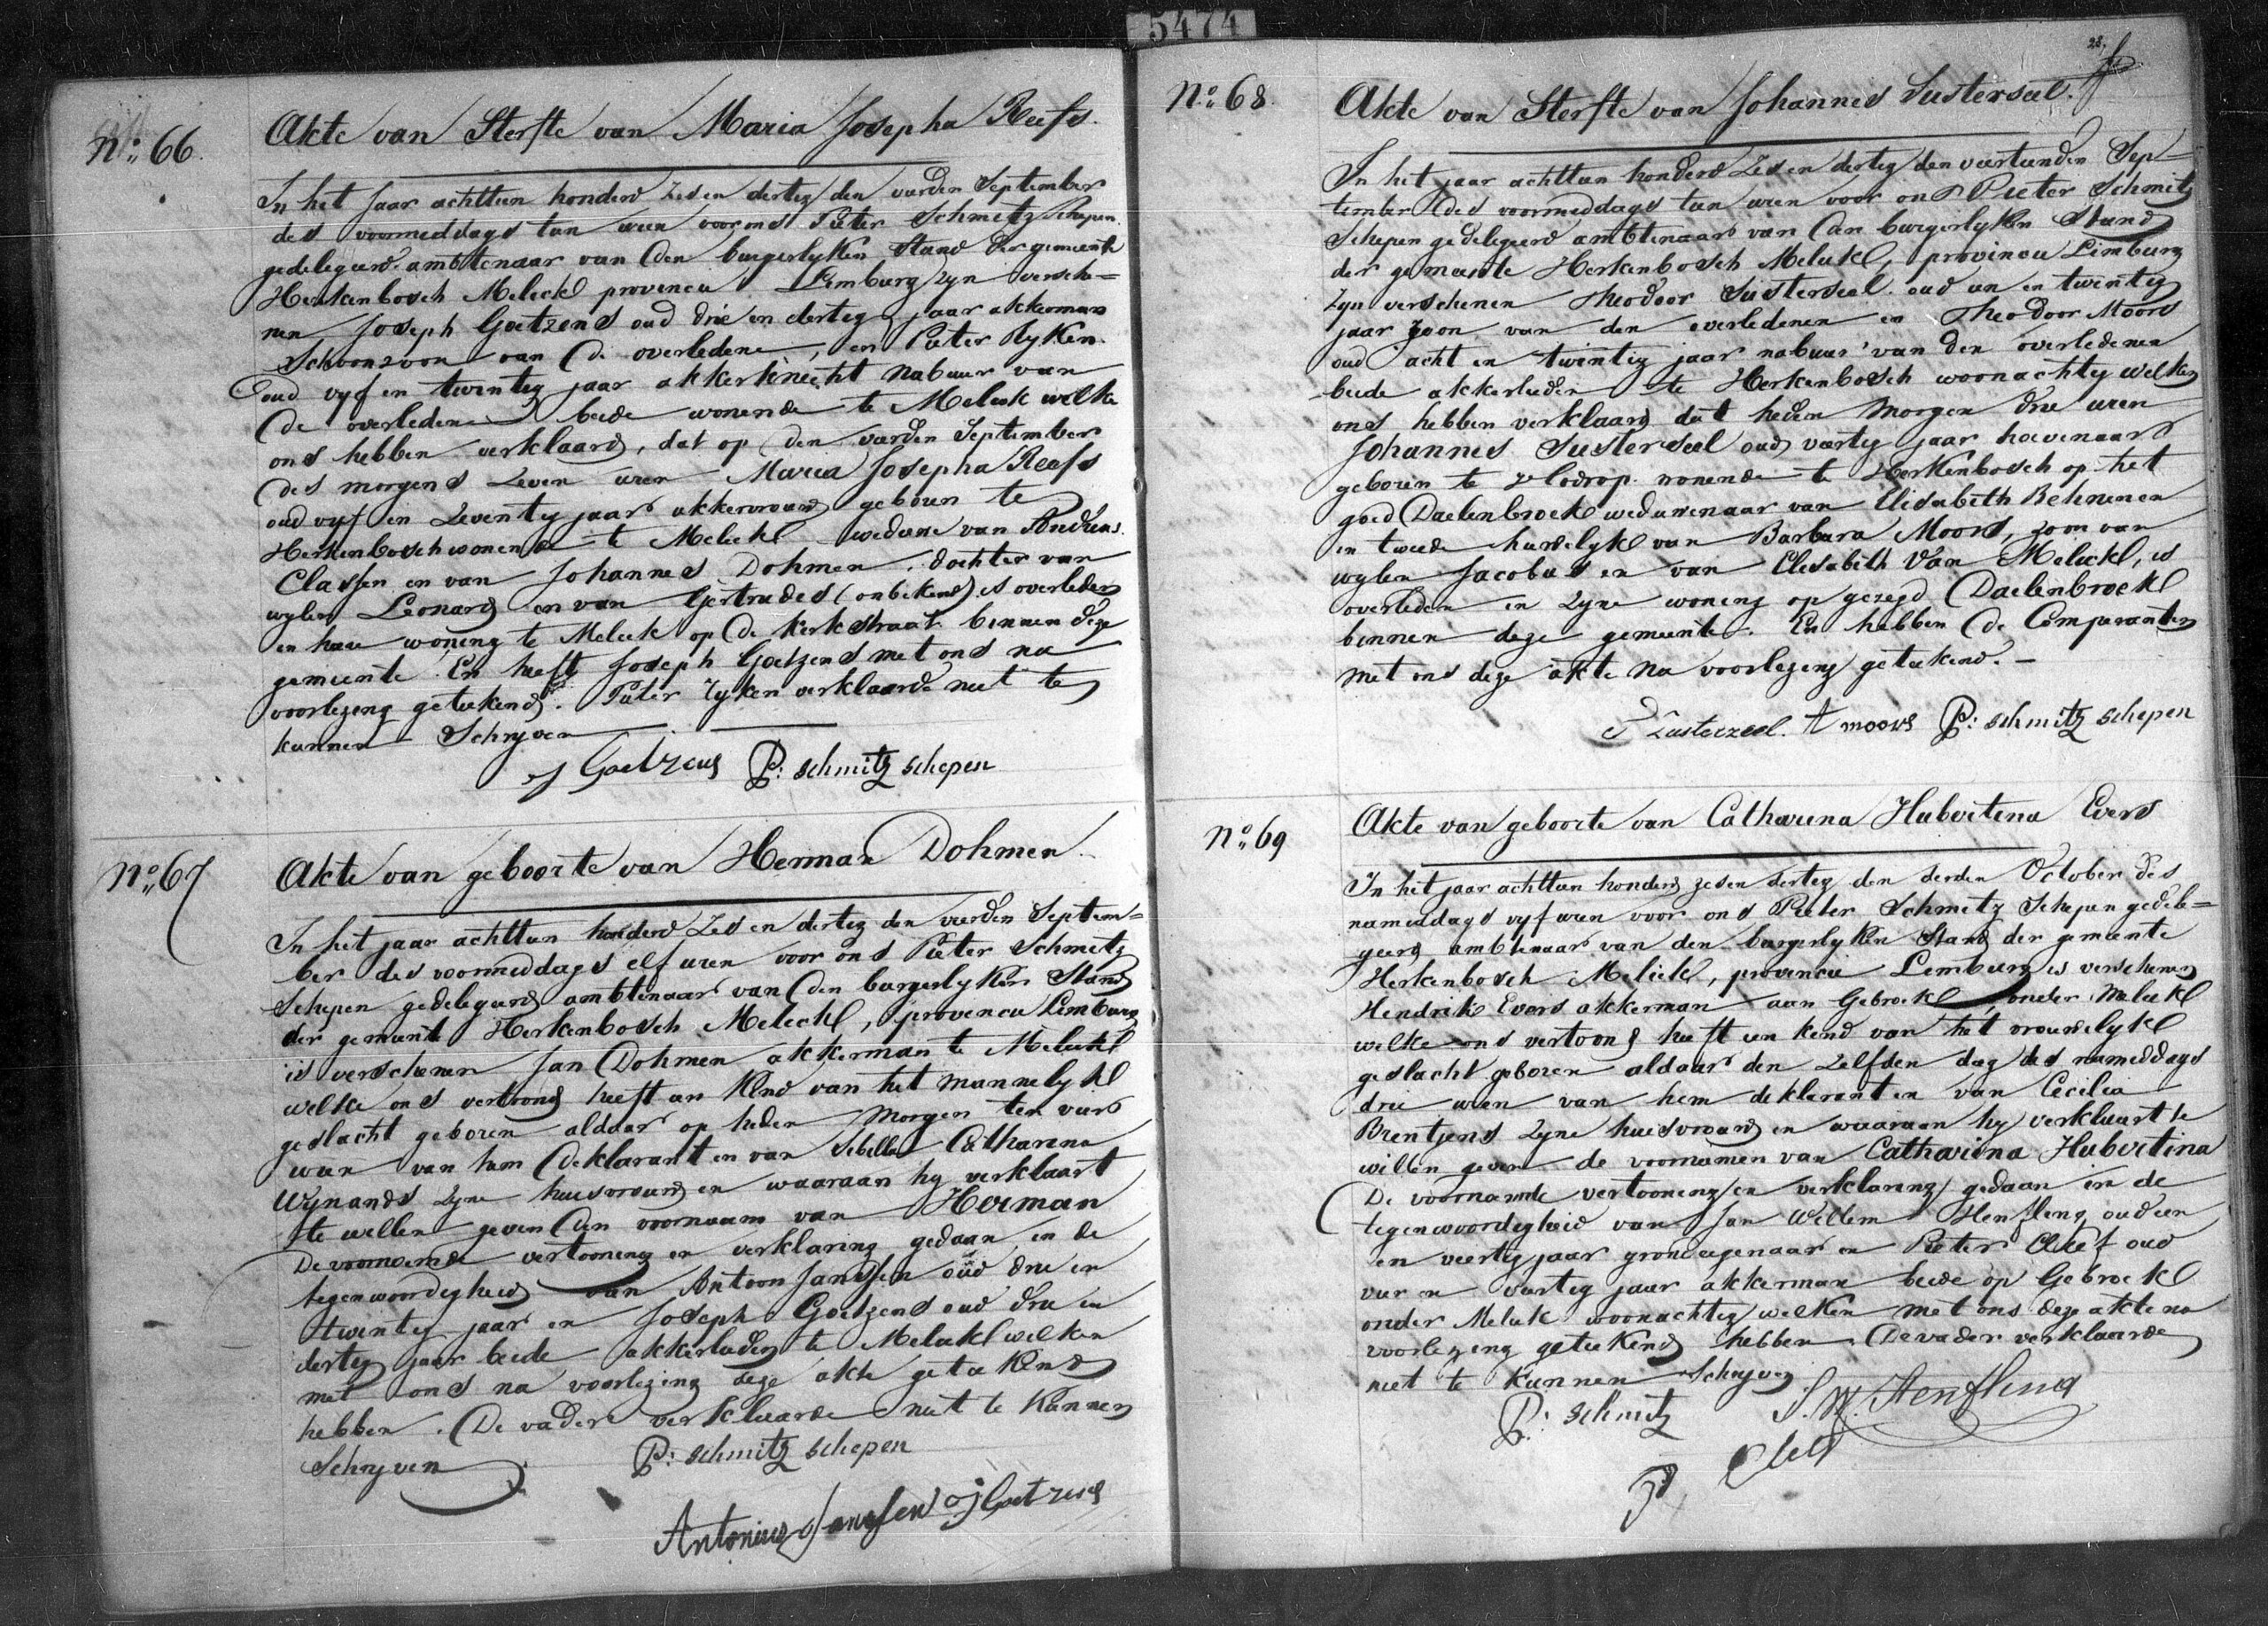 5474
No. 66.
Akte van Sterfte van Maria Josepha Reefs.
In het Jaar achttien honderd Zes en dertig den vierden September
des voormiddags tien uren voor ons Pieter Schmitz Schepen
gedelegeerde ambtenaar van den burgerlyken Stand der gemeente
Herkenbosch Melick provincie Limburg zyn versche=
nen Joseph Goetzens oud drie en dertig jaar akkerman
Schoonzoon van de overledene, en Pieter Ryken
oud vyf en twintig jaar akkerknecht nabuur van
de overledene beide wonende te Melick welke
ons hebben verklaard, dat op den vierden September
des morgens zeven uren Maria Josepha Reefs
oud vyf en zeventig jaar akkervrouw geboren te
Herkenbosch wonende te Melick weduwe van Andreas
Classen en van Johannes Dohmen, dochter van
wylen Leonard en van Gertrudes (onbekend) is overleden
en hare woning te Melick op de Kerkstraat binnen deze
gemeente. En heeft Joseph Goetzens met ons na
voorlezing geteekend. Pieter Ryken verklaarde niet te
kunnen Schryven
J Goetzens P: Schmitz schepen
No. 67
Akte van geboorte van Herman Dohmen.
In het jaar achttien honderd Zes en dertig den vierden Septem=
ber des voormiddags elf uren voor ons Pieter Schmitz
Schepen gedelegeerd ambtenaar van den burgerlyken Stand
der gemeente Herkenbosch Melick, provincie Limburg
is verschenen Jan Dohmen akkerman te Melick
welke ons vertoond heeft een Kind van het mannelyk
geslacht geboren aldaar op heden Morgen ten vier
uren van hem deklarant en van Sibilla Catharina
Wynands zyne huisvrouw en waaraan hy verklaart
te willen geven den voornaam van Herman
De voornoemde vertooning en verklaring gedaan in de
tegenwoordigheid van Antoon Janssen oud drie en
twintig jaar en Joseph Goetzens oud drie en
dertig jaar beide akkerlieden te Melick welken
met ons na voorlezing deze akte geteekend
hebben. De vader verklaarde niet te Kunnen
Schryven
P: Schmitz schepen
Antonius Janssen J Goetzens
28.
No. 68.
Akte van Sterfte van Johannes Susterseel.
In het jaar achttien honderd Zes en dertig den veertienden Sep=
tember des voormiddags tien uren voor ons Pieter Schmitz
Schepen gedelegeerd ambtenaar van den burgerlyken Stand
der gemeente Herkenbosch Melick, provincie Limburg
zyn verschenen Theodoor Susterseel oud een en twintig
jaar zoon van den overledenen en Theodoor Moors
oud acht en twintig jaar nabuur van den overledenen
beide akkerlieden te Herkenbosch woonachtig welken
ons hebben verklaard dat heden Morgen drie uren
Johannes Susterseel oud veertig jaar hovenaar
geboren te Vlodrop wonende te Herkenbosch op het
goed Daelenbroek weduwenaar van Elisabeth Behnenen
in tweede huwelyk van Barbara Moors, zoon van
wylen Jacobus en van Elisabeth Van Melick, is
overleden in zyne woning op gezegd Daelenbroek
binnen deze gemeente. En hebben de Comparanten
met ons deze akte na voorlezing geteekend. —
T Zusterzeel. T moors P: schmitz schepen
No. 69
Akte van geboorte van Catharina Hubertina Evers
In het jaar achttien honderd zes en dertig den derden October des
namiddags vyf uren voor ons Pieter Schmitz Schepen gedele=
geerd ambtenaar van den burgerlyken Stand der gemeente
Herkenbosch Melick, provincie Limburg is verschenen
Hendrik Evers akkerman aan Gebroek onder Melick
welke ons vertoond heeft een kind van het vrouwelyk
geslacht geboren aldaar den zelfden dag des namiddags
drie uren van hem deklarant en van Cecilia
Brentjens zyne huisvrouw en waaraan hy verklaart te
willen geven de voornamen van Catharina Hubertina
De voornoemde vertooning en verklaring gedaan in de
tegenwoordigheid van Jan Willem Henfling oud een
en veertig jaar grondeigenaar en Pieter Cleef oud
vier en veertig jaar akkerman beide op Gebroek
onder Melick woonachtig welken met ons deze akte na
voorlezing geteekend hebben. De vader verklaarde
niet te Kunnen Schryven
P: Schmitz J. W. Henfling
P Cleef